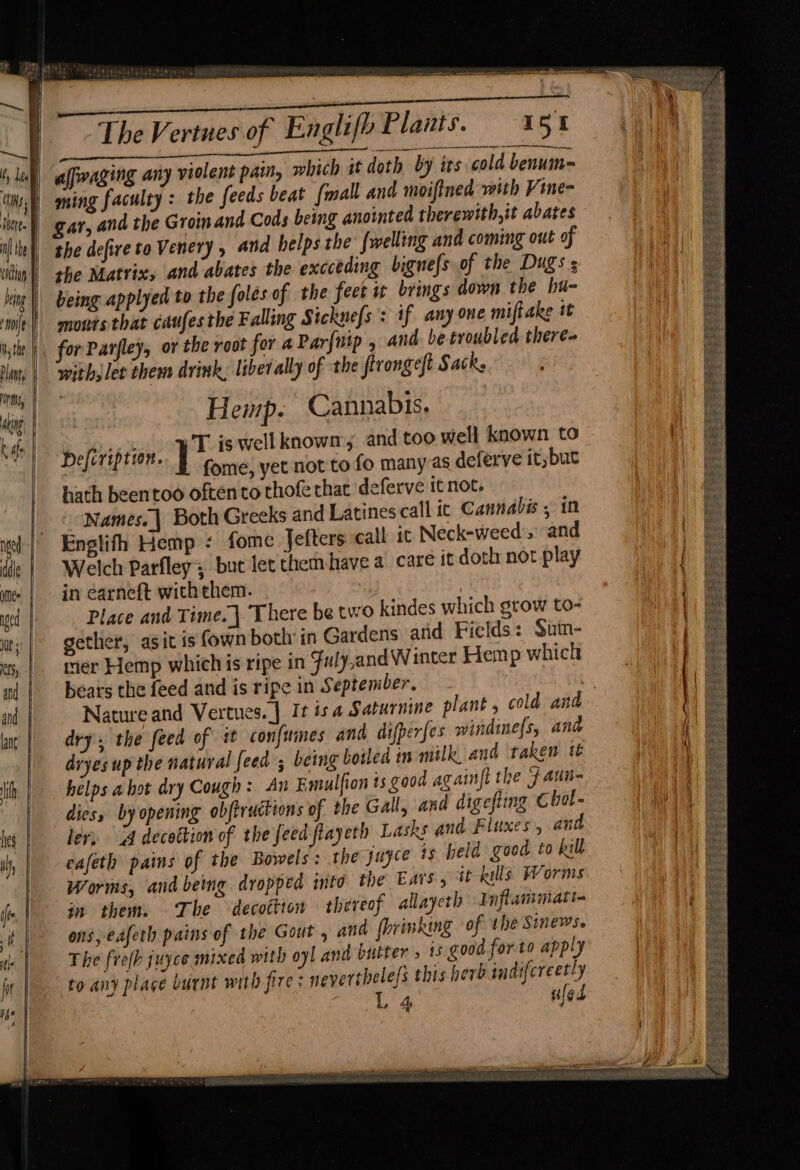 The Vertues of Engliſh Plants. 151
aſſwaging any violent pain, which it doth by its cold benum-
ming faculty : the ſeeds beat ſmall and moiſtned with Vine-
gar, and the Groin and Cods being anointed therewith, it abates
the deſire to Venery, and helps the ſwelling and coming out of
the Matrix, and abates the excceding bigneſs of the Dugs ;
being applyed to the ſoles of the feet it brings down the hu-
mours that cauſes the Falling Sickneſs : if any one miſtake it
for Parſley, or the root for a Parſnip, and be troubled there-
with, let them drink liberally of the ſtrongeſt Sack.
Hemp. Cannabis.
Deſcription. IT is well known, and too well known to
ſome, yet not to ſo many as deſerve it, but
hath been too often to thoſe that deſerve it not.
Names.] Both Greeks and Latines call it Cannabis, in
Engliſh Hemp : ſome Jeſters call it Neck-weed, and
Welch Parſley ; but let them have a care it doth not play
in earneſt with them.
Place and Time.] There be two kindes which grow to-
gether, as it is ſown both in Gardens and Fields: Sum-
mer Hemp which is ripe in July, and Winter Hemp which
bears the ſeed and is ripe in September.
Nature and Vertues.] It is a Saturnine plant, cold and
dry ; the ſeed of it conſumes and diſperſes windineſs, and
dryes up the natural ſeed ; being boiled in milk and taken it
helps a hot dry Cough : An Emulſion is good againſt the Jaun-
dies, by opening obſtructions of the Gall, and digeſting Chol-
ler. A decoction of the ſeed ſtayeth Lasks and Fluxes, and
eaſeth pains of the Bowels : the juyce is held good to kill
Worms, and being dropped into the Ears, it kills Worms
in them. The decoction thereof allayeth Inflammati-
ons, eaſeth pains of the Gout, and ſhrinking of the Sinews.
The freſh juyce mixed with oyl and butter, is good for to apply
to any place burnt with fire : nevertheleſs this herb indiſcreetly
L 4 uſed